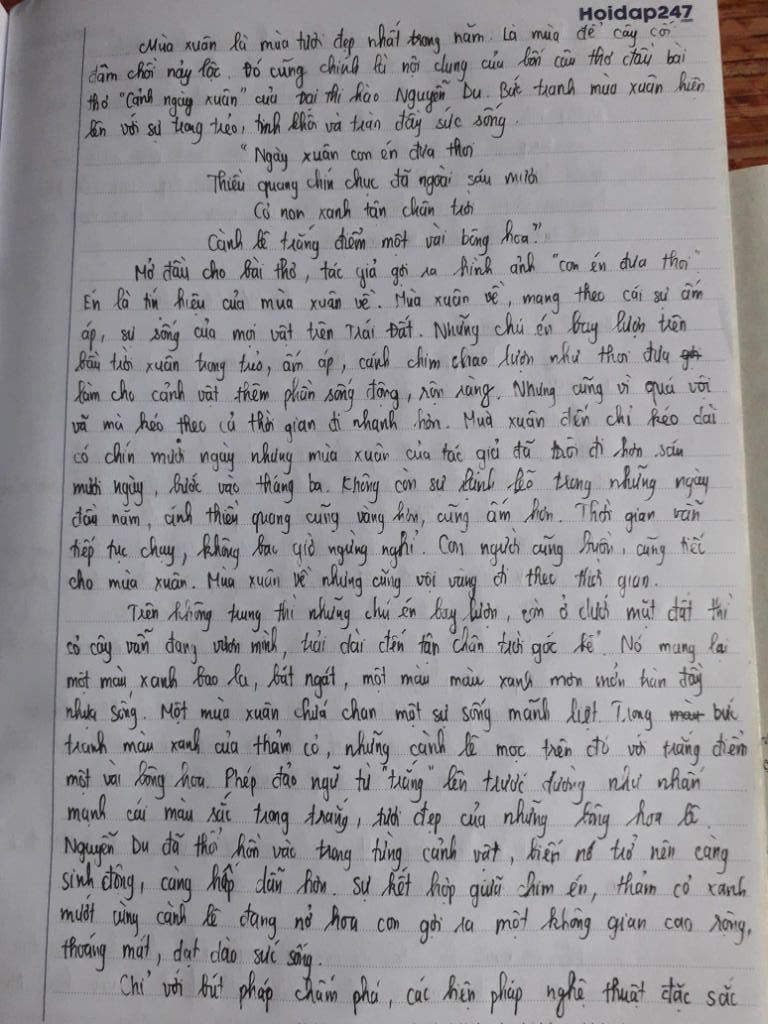 Hoidap247
Mùa xuân là mùa tươi đẹp nhất trong năm. Là mùa để cây cối
đâm chồi nảy lộc. Đó cũng chính là nội dung của bốn câu thơ đầu bài
thơ "Cảnh ngày xuân" của Đại thi hào Nguyễn Du. Bức tranh mùa xuân hiện
lên với sự trong trẻo, tinh khôi và tràn đầy sức sống.
"Ngày xuân con én đưa thoi
Thiều quang chín chục đã ngoài sáu mươi
Cỏ non xanh tận chân trời
Cành lê trắng điểm một vài bông hoa."
Mở đầu cho bài thơ, tác giả gợi ra hình ảnh "con én đưa thoi"
Én là tín hiệu của mùa xuân về. Mùa xuân về, mang theo cái sự ấm
áp, sự sống của mọi vật trên Trái Đất. Những chú én bay lượn trên
bầu trời xuân trong trẻo, ấm áp, cánh chim chao lượn như thoi đưa
làm cho cảnh vật thêm phần sống động, rộn ràng. Nhưng cũng vì quá vội
vã mà kéo theo cả thời gian đi nhanh hơn. Mùa xuân đến chỉ kéo dài
có chín mươi ngày nhưng mùa xuân của tác giả đã trôi đi hơn sáu
mươi ngày, bước vào tháng ba. Không còn sự lạnh lẽo trong những ngày
đầu năm, ánh thiều quang cũng vàng hơn, cũng ấm hơn. Thời gian vẫn
tiếp tục chạy, không bao giờ ngừng nghỉ. Con người cũng buồn, cũng tiếc
cho mùa xuân. Mùa xuân về nhưng cũng vội vàng đi theo thời gian.
Trên không trung thì những chú én bay lượn, còn ở dưới mặt đất thì
cỏ cây vẫn đang vươn mình, trải dài đến tận chân trời góc bể. Nó mang lại
một màu xanh bao la, bát ngát, một màu màu xanh mơn mởn tràn đầy
nhựa sống. Một mùa xuân chứa chan một sự sống mãnh liệt. Trong bức
tranh màu xanh của thảm cỏ, những cành lê mọc trên đó với trắng điểm
một vài bông hoa. Phép đảo ngữ từ "trắng" lên trước dường như nhấn
mạnh cái màu sắc trong trắng, tươi đẹp của những bông hoa lê.
Nguyễn Du đã thổi hồn vào trong từng cảnh vật, biến nó trở nên càng
sinh động, càng hấp dẫn hơn. Sự kết hợp giữa chim én, thảm cỏ xanh
mướt cùng cành lê đang nở hoa còn gợi ra một không gian cao rộng,
thoáng mát, dạt dào sức sống.
Chỉ với bút pháp chấm phá, các biện pháp nghệ thuật đặc sắc